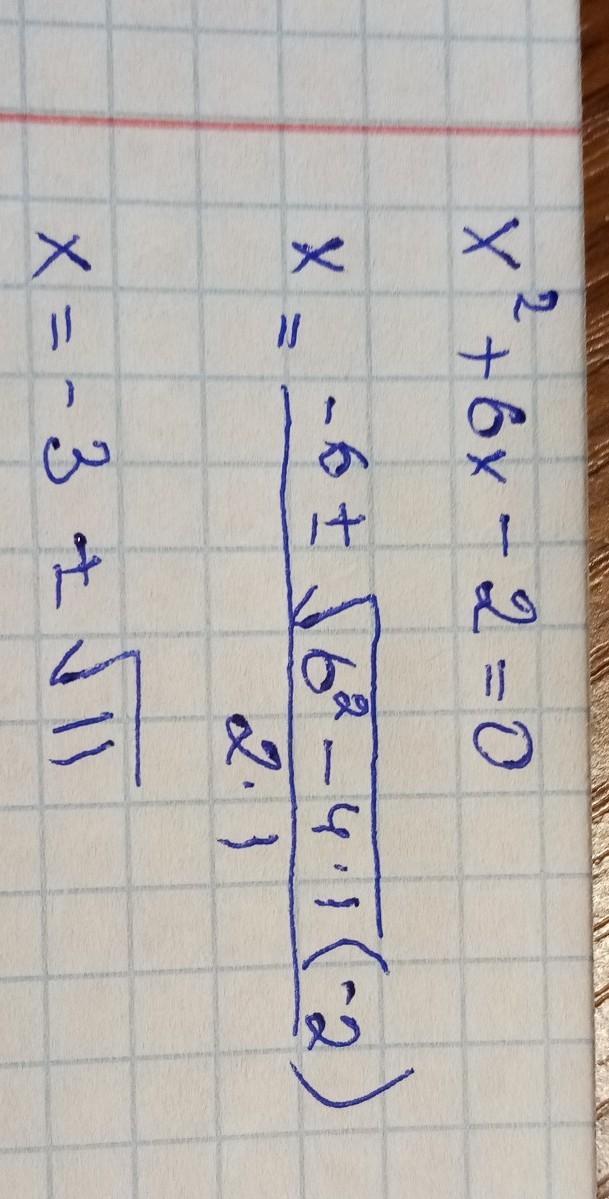 x² + 6x - 2 = 0
x = (-6 ± √(6² - 4 · 1(-2))) / (2 · 1)
x = -3 ± √11